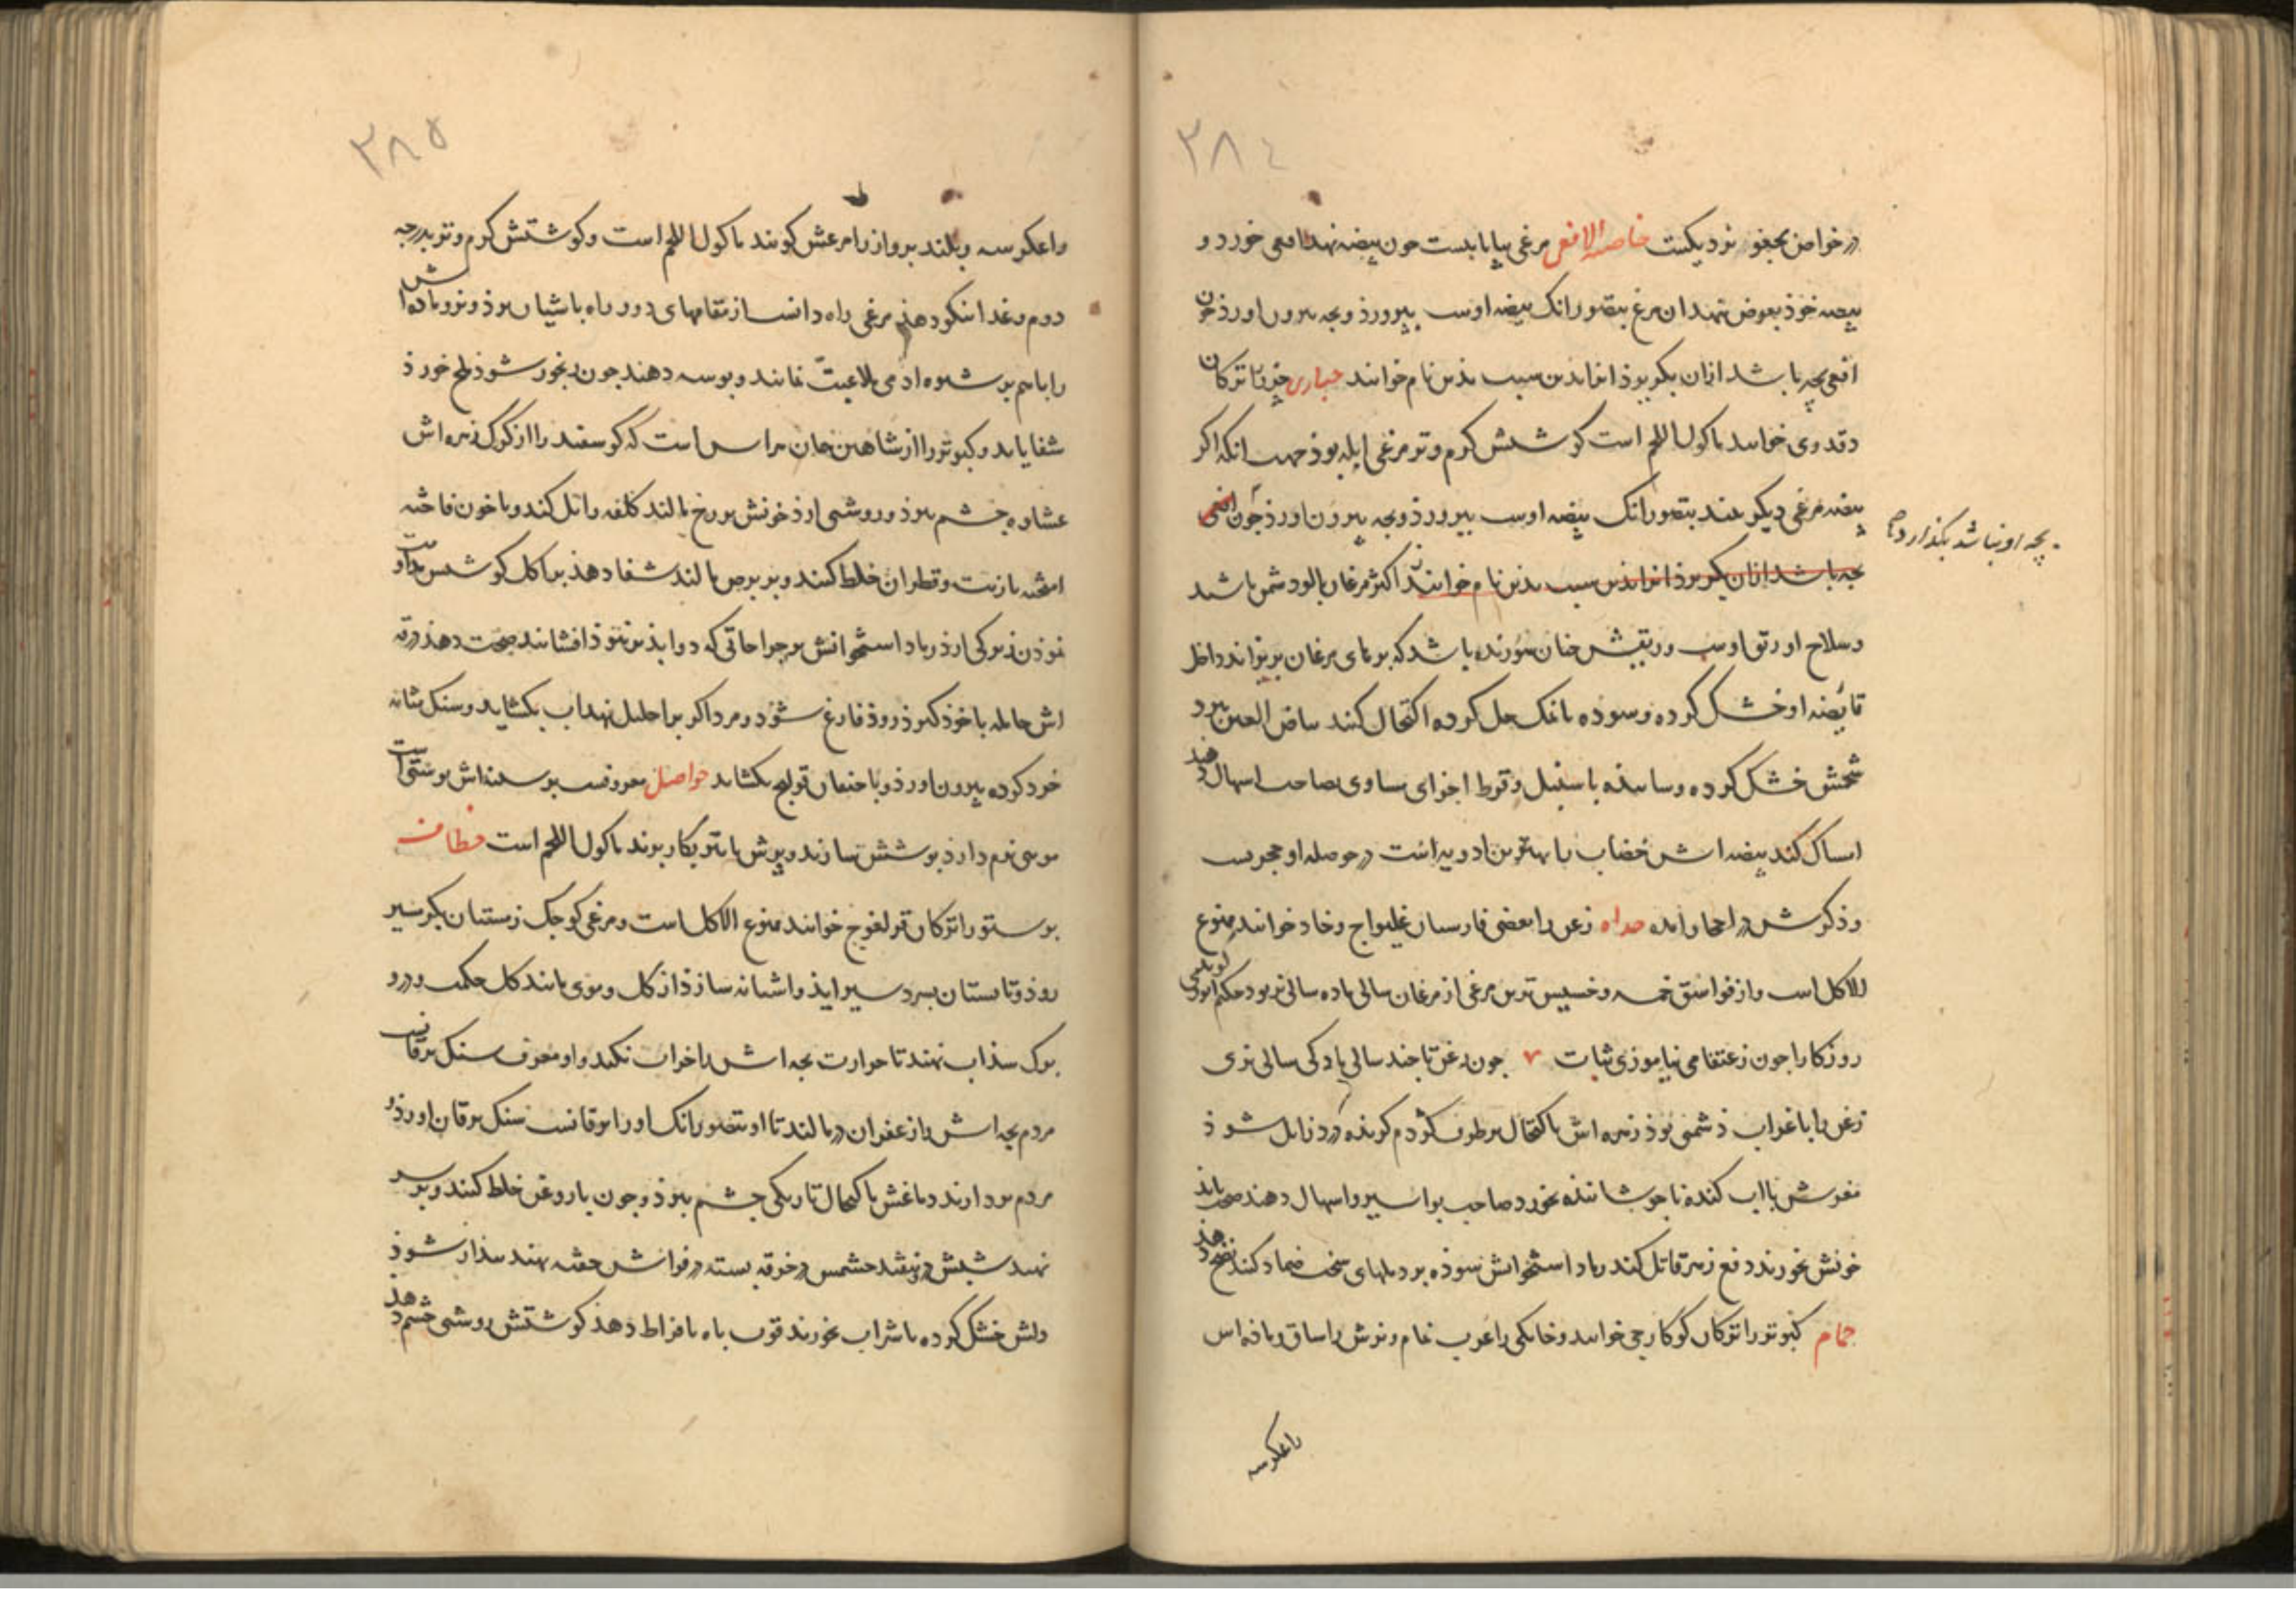 ۳۸۴
در خواص بجغو نزدیکست خاضنة الافعی مرغی بیابانیست جون بیضه نهد افعی خورد و
بیضه خوذ بعوض نهد ان مرغ بتصور انک بیضه اوست بپرورذ وبجه بیرون اورذ جون
افعی بچه باشد ازان بکریزذ اعراب بذین سبب بذین نام خوانند حباری جرز را ترکان
دقدوی خوانند ماکول اللحم است کوشتش کرم وتر مرغی ابله بوذ جهت انکه اکر
بیضه مرغی دیکر بیند بتصور انک بیضه اوست بپرورذ وبجه بیرون اورذ جون افعی
بچه او نباشد بکذارد
بجه باشد ازان بکریزذ بذین سبب بذین نام خوانند اکثر مرغان با او دشمن باشند
وسلاح او زرق اوست وزرقش جنان سوزنده باشد که برهای مرغان بریزاند داخل
قانصه او خشک کرده وسوده با نمک حل کرده اکتحال کنند بیاض العین ببرد
شحمش خشک کرده وساییده با سنبل وقرط اجزای مساوی بصاحب اسهال دهند
امساک کند بیضه اش خضاب را بهترین ادویه است در حوصله او حجریست
وذکرش در احجار امده حداه زغن را بعضی فارسیان غلیواج وخاد خوانند ممنوع
الاکل است واز فواسق خمسه وخسیس ترین مرغی از مرغان سالی ماده سالی نر بود حکیم انوری کوید
روزکارا جون ز عنقا می نیاموزی ثبات ۷ جون زغن تا جند سالی مادکی سالی نری
زغن را با غراب دشمنی بوذ زهره اش باکتحال برطرف کژدم کزیده درد زایل شوذ
مغزش با اب کندنا جوشانیذه بخورد صاحب بواسیر واسهال دهند صحت یابذ
خونش بخورند دفع زهر قاتل کند رماد استخوانش سوذه بر دملهای سخت ضماد کنند نضج دهذ
حمام کبوتر را ترکان کوکارجی خوانند وخانکی را عرب حمام ونرش را ساق
راعکرسه
۳۸۵
راعکرسه وبلند پرواز را مرعش کویند ماکول اللحم است وکوشتش کرم وتر بدرجه
دوم وغذا نیکو دهذ مرغی راه دانست از مقامهای دور راه باشیان برذ ونر وماده اش
را باهم بر شیوه ادمی ملاعبت نمایند وبوسه دهند جون رنجور شوذ ملخ خورذ
شفا یابد وکبوتر را از شاهین جان هراس است که کوسفند را از کرک زهره اش
غشاوه چشم ببرذ وروشنی ارذ خونش بر رخ مالند کلفه زایل کند وبا خون فاخته
امیخته با زیت وقطران خلط کنند وبر برص مالند شفا دهذ باکل کوشتش مداومت
نموذن زیرکی ارذ رماد استخوانش بر جراحاتی که دوا بذیر نبوذ افشانند صحت دهذ زرق
اش حامله با خوذ کیرذ زوذ فارغ شود ومرد اکر بر احلیل نهد اب بکشاید وسنک مثانه
خرد کرده بیرون اورذ وباحتقان قولنج بکشاید حواصل معروفست بر سینه اش پوستی است
مویی نرم دارذ پوشش سازند وپرش با تیر بکار برند ماکول اللحم است خطاف
پرستو را ترکان قرلغوج خوانند ممنوع الاکل است ومرغی کوجک زمستان بکرمسیر
روذ وتابستان بسردسیر ایذ واشیانه سازذ از کل وموی مانند کل حکمت ودرو
برک سذاب نهند تا حرارت بجه اش را خراب نکند واو معرف سنک یرقانست
مردم بجه اش را زعفران در مالند تا او بتصور انک او را یرقانست سنک یرقان اورذ و
مردم بردارند دماغش باکتحال تاریکی چشم ببرذ وجون با روغن خلط کنند وبر سر
نهند شپش در نیفتد چشمش در خرقه بسته در فراش خفته نهند بیذار شوذ
دلش خشک کرده با شراب بخورند قوت باه بافراط دهذ کوشتش روشنی چشم دهذ